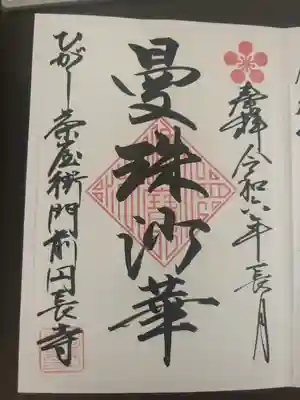 奉拝 令和六年長月
曼珠沙華
ひがし茶屋街門前円長寺